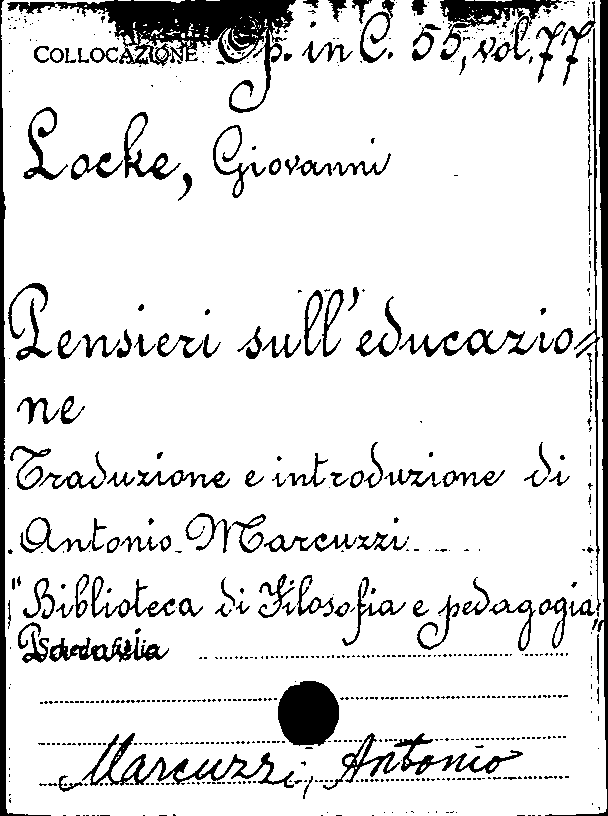 COLLOCAZIONE Op. in C. 55, vol. 77
Locke, Giovanni
Pensieri sull'educazio=
ne
Traduzione e introduzione di
Antonio Marcuzzi
"Biblioteca di Filosofia e pedagogia"
Paravia
Marcuzzi, Antonio